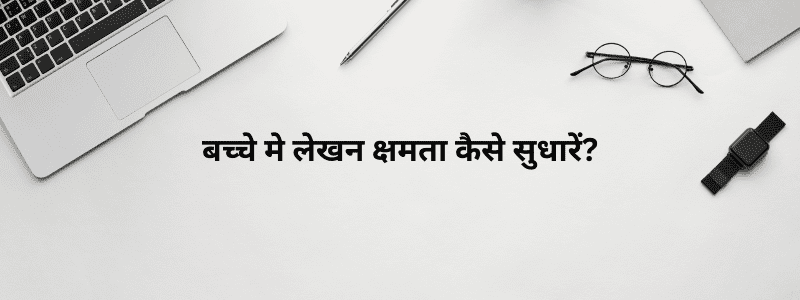 बच्चे मे लेखन क्षमता कैसे सुधारें?